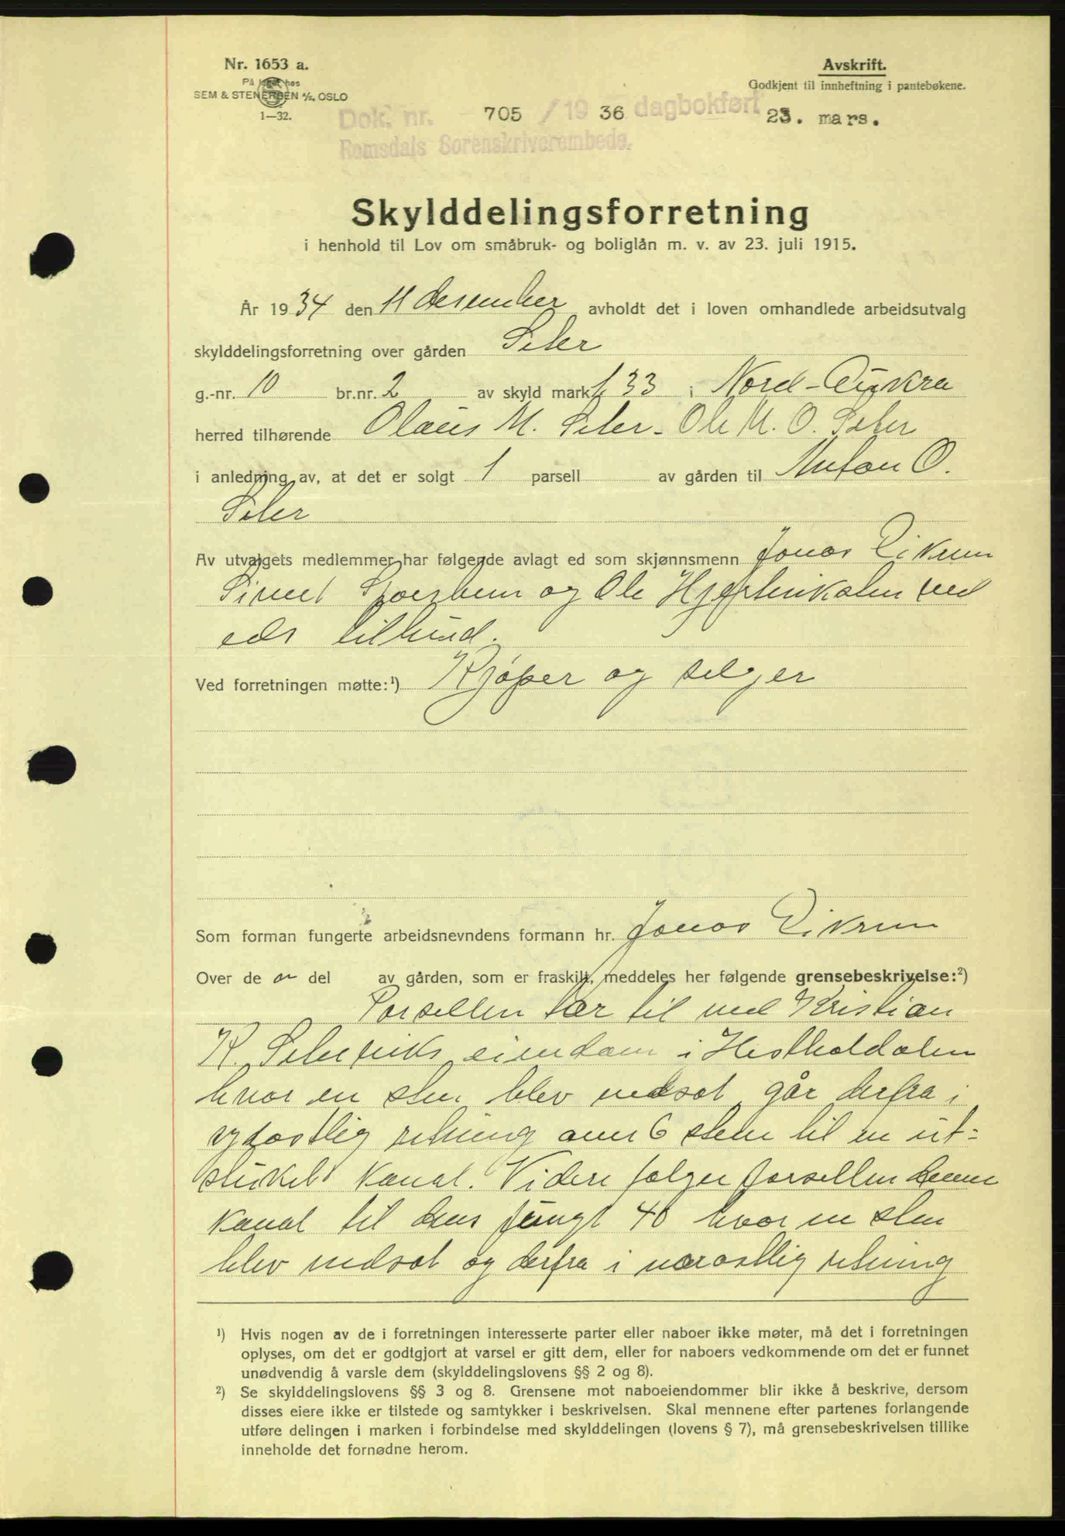 Nr. 1653 a.
På lager hos
SEM & STENERSEN A/S, OSLO
1—32.
Avskrift.
Godkjent til innheftning i pantebøkene.
Dok. nr. 705 / 19 36 dagbokført 23. mars.
Romsdals Sorenskriverembede.
Skylddelingsforretning
i henhold til Lov om småbruk- og boliglån m. v. av 23. juli 1915.
År 1934 den 11 desember avholdt det i loven omhandlede arbeidsutvalg
skylddelingsforretning over gården Seter
g.-nr. 10 br.nr. 2 av skyld mark 1,33 i Nord-Aukra
herred tilhørende Olaus M. Seter - Ole M. O. Seter
i anledning av, at det er solgt 1 parsell av gården til Anton O.
Seter
Av utvalgets medlemmer har følgende avlagt ed som skjønnsmenn Jonas Eikrem
Sivert og Ole ved
eds tilbud.
Ved forretningen møtte:¹) Kjøper og selger
Som forman fungerte arbeidsnevndens formann hr. Jonas Eikrem
Over de n del av gården, som er fraskilt, meddeles her følgende grensebeskrivelse:²)
Parsellen tar til ved Kristian
K. Seterviks eiendom i Hestholdalen
hvor en sten blev nedsat, går derfra i
sydøstlig retning over 6 stene til en ut-
stukket kanal. Videre følger parsellen denne
kanal til dens pungt 40 hvor en sten
blev nedsat og derfra i norostlig retning
¹) Hvis nogen av de i forretningen interesserte parter eller naboer ikke møter, må det i forretningen
oplyses, om det er godtgjort at varsel er gitt dem, eller for naboers vedkommende om det er funnet
unødvendig å varsle dem (skylddelingslovens §§ 2 og 8).
²) Se skylddelingslovens §§ 3 og 8. Grensene mot naboeiendommer blir ikke å beskrive, dersom
disses eiere ikke er tilstede og samtykker i beskrivelsen. Skal mennene efter partenes forlangende
utføre delingen i marken i forbindelse med skylddelingen (lovens § 7), må grensebeskrivelsen tillike
inneholde det fornødne herom.